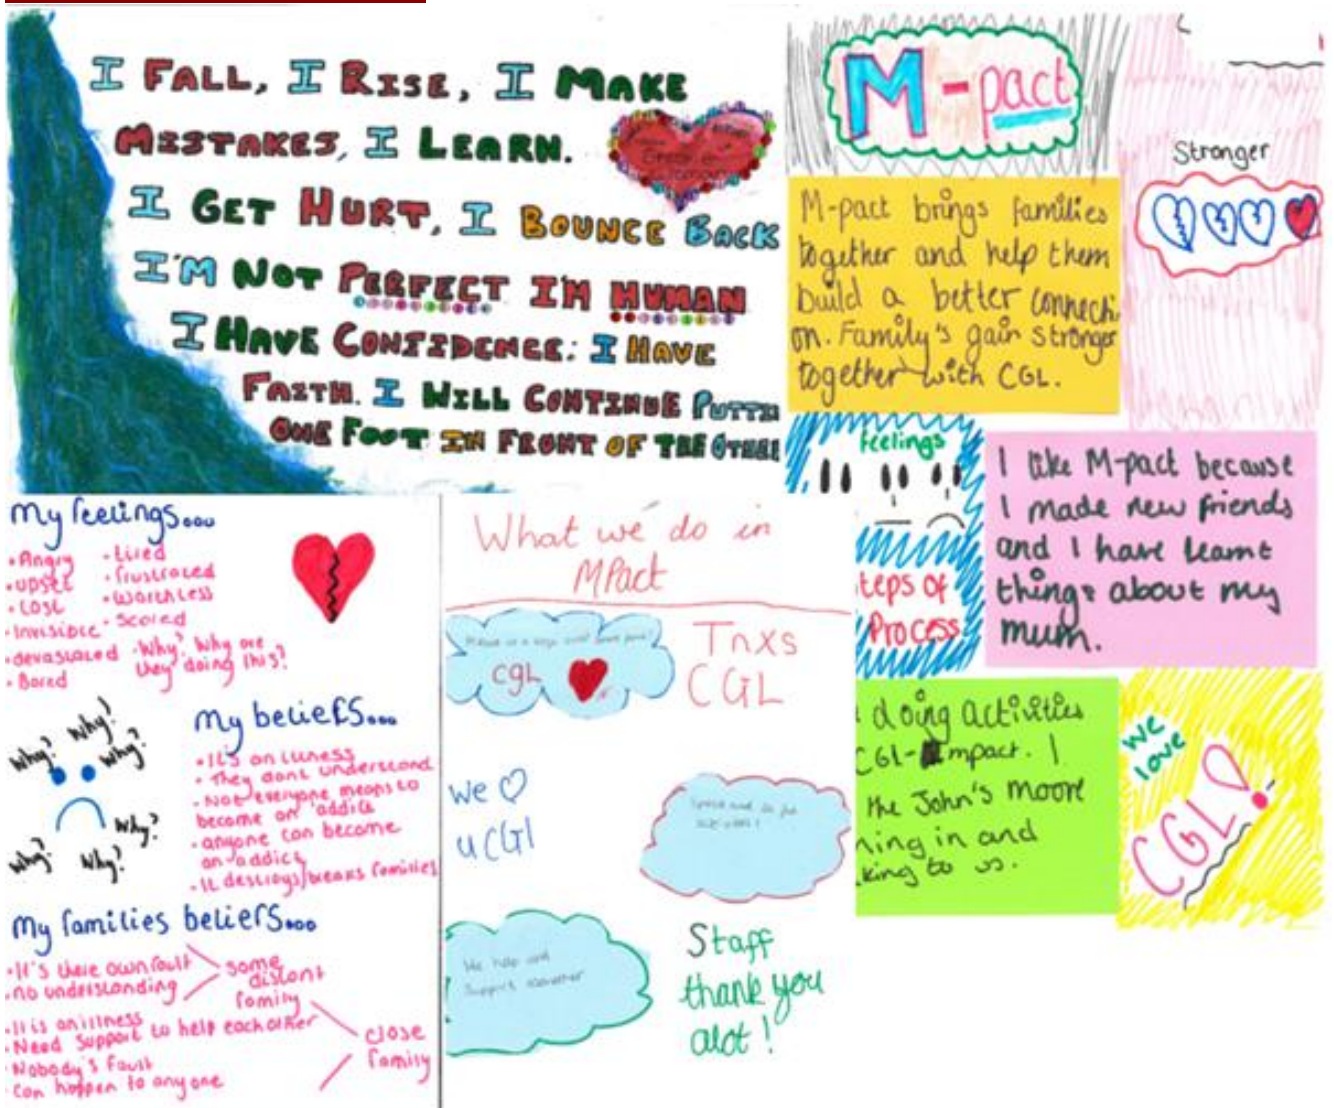 I FALL, I RISE, I MAKE
MISTAKES, I LEARN.
I GET HURT, I BOUNCE BACK
I'M NOT PERFECT I'M HUMAN
I HAVE CONFIDENCE: I HAVE
FAITH. I WILL CONTINUE PUTTI
ONE FOOT IN FRONT OF THE OTHER
M-pact
M-pact brings families
together and help them
build a better connecti
on. Family's gain stronger
together with CGL.
Stronger
feelings
teps of
Process
I like M-pact because
I made new friends
and I have learnt
things about my
mum.
doing activities
CGL-Impact. I
the John's moore
ning in and
king to us.
we
love
CGL!
My feelings...
• Angry
• upset
• Lost
• Invisible
• devastated
• Bored
• tired
• frustrated
• worthless
• Scared
• Why? Why are
they doing this?
Why? Why?
Why?
Why?
Why? Why?
My beliefs...
• It's an illness
• They dont understand
• Not everyone means to
become an addict
• anyone can become
an addict
• It destroys/breaks families
My families beliefs...
• It's there own fault
• no understanding
some
distant
family
• It is an illness
• Need support to help each other
• Nobody's fault
• Can happen to any one
close
family
What we do in
MPact
CGL
Tnxs
CGL
we ♡
u CGl
We help and
Support
Staff
thank you
alot!